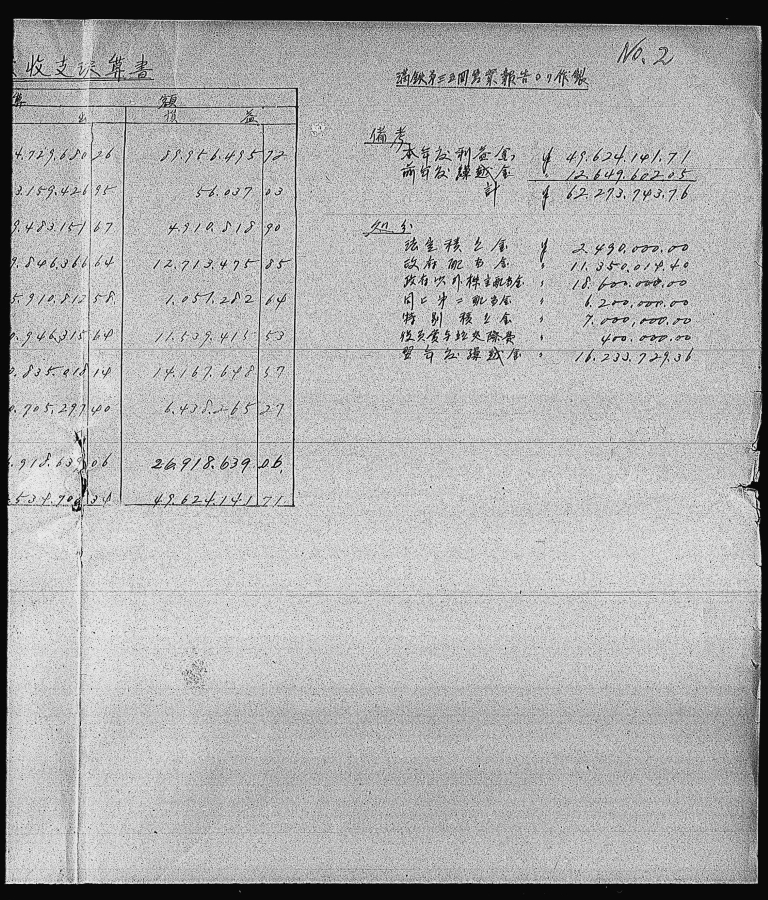 No. 2
收支決算書
満鉄第三五回営業報告ヨリ作製
算 額
出 損 益
4.729.680 26 89.956.495 72
3.159.426 95 56.037 03
9.483.151 67 4.910.818 90
9.846.366 64 12.713.475 85
5.910.812 58 1.051.282 64
0.946.315 64 11.539.415 53
0.835.018 14 14.167.648 57
0.705.297 40 6.438.265 27
.918.639 06 26.918.639 06
.534.70 34 49.624.141 71
備考
本年度利益金 ¥ 49.624.141.71
前年度繰越金 〃 12.649.602.05
計 ¥ 62.273.743.76
処分
法定積立金 ¥ 2.490.000.00
政府配当金 〃 11.350.014.40
政府以外株主配当金 〃 18.600.000.00
同上第二配当金 〃 6.200.000.00
特別積立金 〃 7.000,000.00
役員賞与並交際費 〃 400.000.00
翌年度繰越金 〃 16.233.729.36